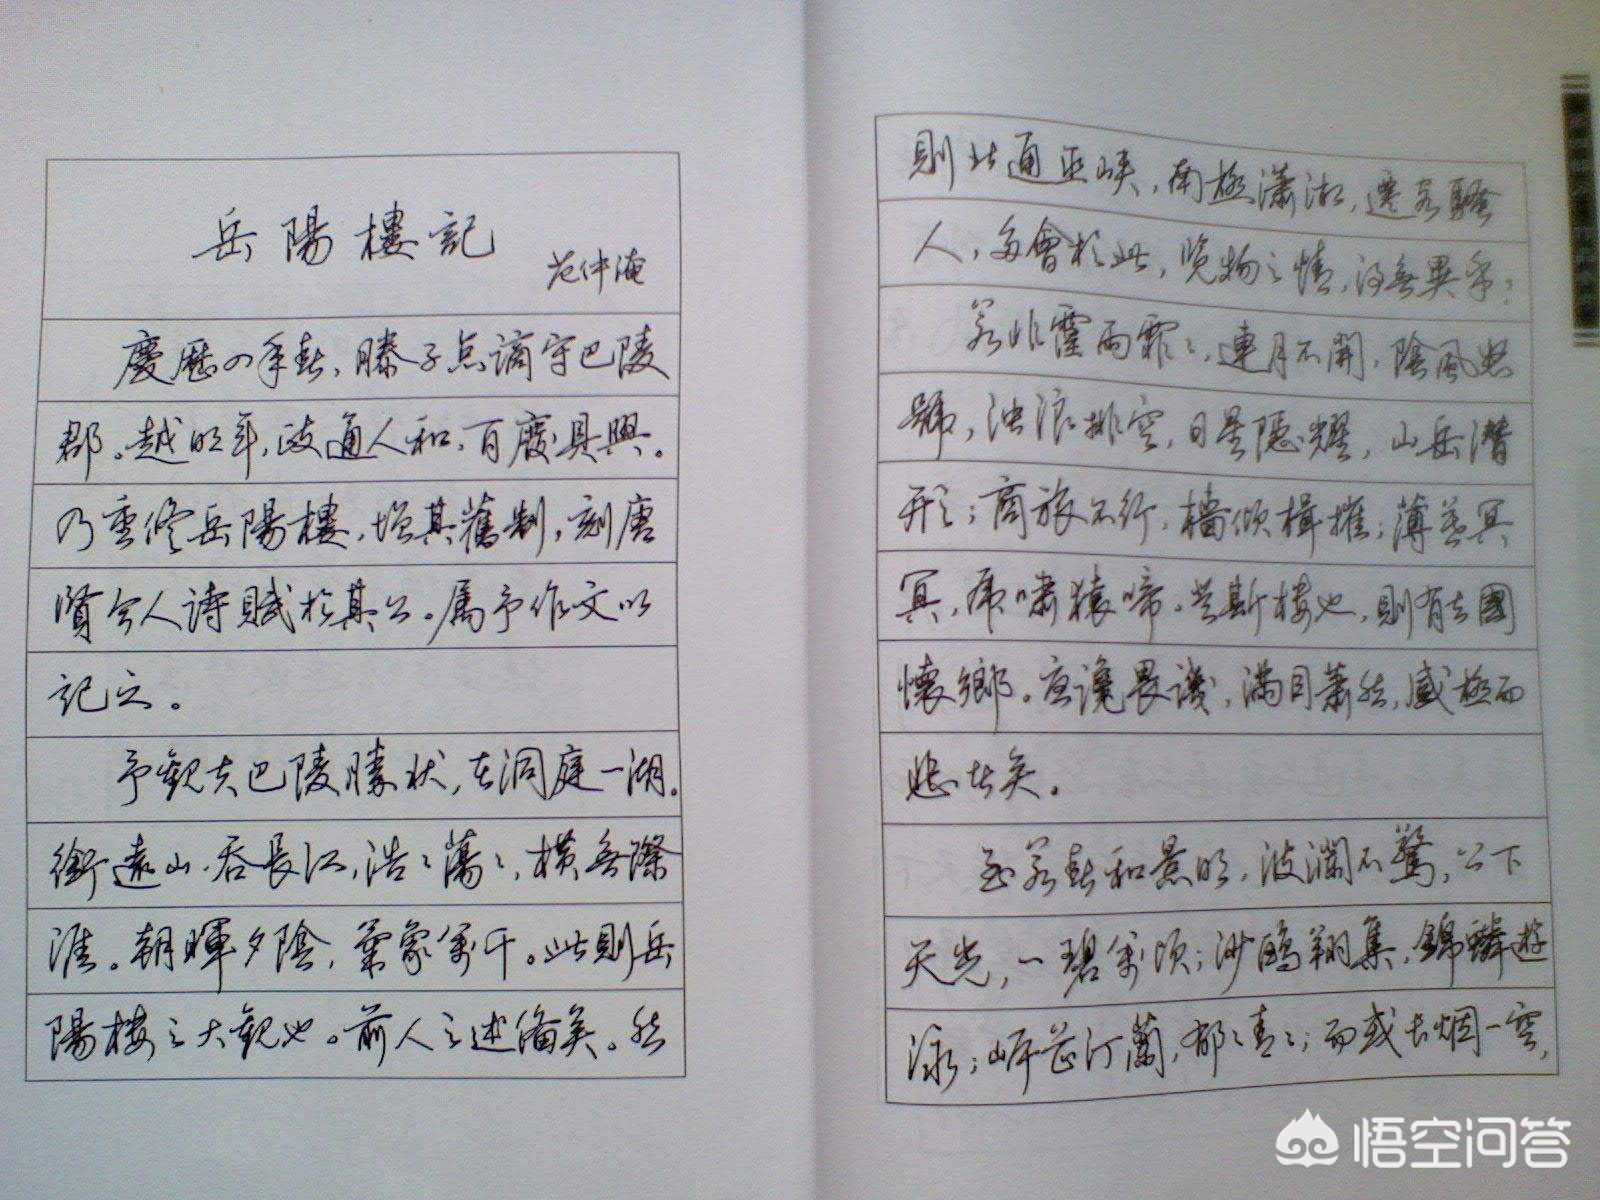 岳陽樓記
范仲淹
慶歷四年春，滕子点謫守巴陵
郡。越明年，政通人和，百廢具興。
乃重修岳陽樓，增其舊制，刻唐
賢今人诗賦於其上。属予作文以
記之。
予觀夫巴陵勝状，在洞庭一湖。
銜遠山，吞長江，浩〻蕩〻，横無際
涯。朝暉夕陰，氣象萬千。此則岳
陽樓之大觀也。前人之述備矣。然
則北通巫峡，南極瀟湘，遷客騷
人，多會於此，览物之情，得無異乎？
若非霪雨霏〻，連月不開，陰風怒
號，浊浪排空，日星隐耀，山岳潛
形；商旅不行，檣倾楫摧；薄暮冥
冥，虎嘯猿啼。登斯樓也，則有去國
懷鄉。憂讒畏譏，满目蕭然，感極而
悲者矣。
至若春和景明，波瀾不驚，上下
天光，一碧萬顷；沙鸥翔集，錦鱗游
泳；岸芷汀蘭，郁〻青〻；而或长烟一空，
悟空问答